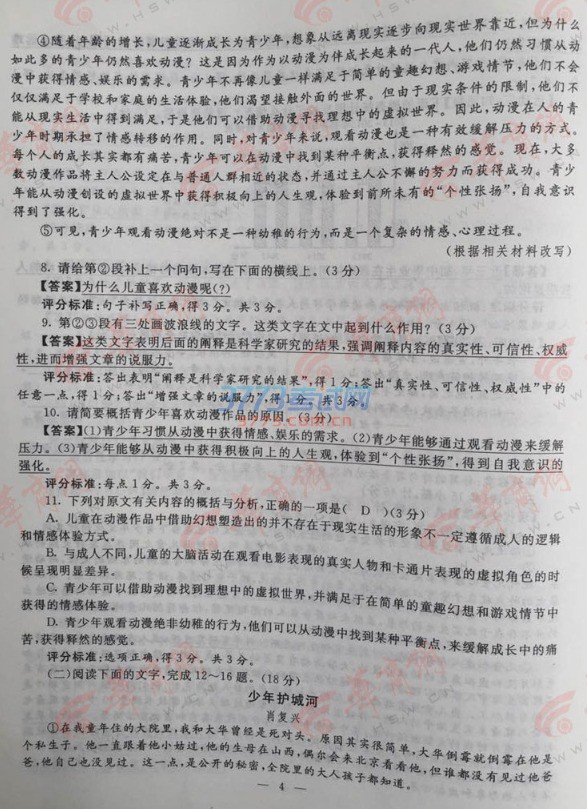 ④随着年龄的增长,儿童逐渐成长为青少年,想象从远离现实逐步向现实世界靠近,但为什么
如此多的青少年仍然喜欢动漫?这是因为作为以动漫为伴成长起来的一代人,他们仍然习惯从动
漫中获得情感、娱乐的需求。青少年不再像儿童一样满足于简单的童趣幻想、游戏情节,他们不会
仅仅满足于学校和家庭的生活体验,他们渴望接触外面的世界。但由于现实条件的限制,他们不
能从现实生活中得到满足,于是他们可以借助动漫寻找理想中的虚拟世界。因此,动漫在人的青
少年时期承担了情感转移的作用。同时,对青少年来说,观看动漫也是一种有效缓解压力的方式,
每个人的成长其实都有痛苦,青少年可以在动漫中找到某种平衡点,获得释然的感觉。现在,大多
数动漫作品将主人公设定在与普通人群相近的状态,并通过主人公不懈的努力而获得成功。青少
年能从动漫创设的虚拟世界中获得积极向上的人生观,体验到前所未有的“个性张扬”,自我意识
得到了强化。
⑤可见,青少年观看动漫绝对不是一种幼稚的行为,而是一个复杂的情感、心理过程。
(根据相关材料改写)
8. 请给第②段补上一个问句,写在下面的横线上。(3分)
【答案】为什么儿童喜欢动漫呢(?)
评分标准:句子补写正确,得3分。共3分。
9. 第②③段有三处画波浪线的文字。这类文字在文中起到什么作用?(3分)
【答案】这类文字表明后面的阐释是科学家研究的结果,强调阐释内容的真实性、可信性、权威
性,进而增强文章的说服力。
评分标准:答出表明“阐释是科学家研究的结果”,得1分;答出“真实性、可信性、权威性”中的
任意一点,得1分;答出“增强文章的说服力”,得1分。共3分。
10. 请简要概括青少年喜欢动漫作品的原因。(3分)
【答案】(1)青少年习惯从动漫中获得情感、娱乐的需求。(2)青少年能够通过观看动漫来缓解
压力。(3)青少年能够从动漫中获得积极向上的人生观,体验到“个性张扬”,得到自我意识的
强化。
评分标准:每点1分。共3分。
11. 下列对原文有关内容的概括与分析,正确的一项是( D )(3分)
A. 儿童在动漫作品中借助幻想塑造出的并不存在于现实生活的形象不一定遵循成人的逻辑
和情感体验方式。
B. 与成人不同,儿童的大脑活动在观看电影表现的真实人物和卡通片表现的虚拟角色的时
候呈现明显差异。
C. 青少年可以借助动漫找到理想中的虚拟世界,并满足于在简单的童趣幻想和游戏情节中
获得的情感体验。
D. 青少年观看动漫绝非幼稚的行为,他们可以从动漫中找到某种平衡点,来缓解成长中的痛
苦,获得释然的感觉。
评分标准:选项正确,得3分。共3分。
(二)阅读下面的文字,完成12~16题。(18分)
少年护城河
肖复兴
①在我童年住的大院里,我和大华曾经是死对头。原因其实很简单,大华倒霉就倒霉在他是
个私生子。他一直跟着他小姑过,他的生母在山西,偶尔会来北京看看他,但谁都没有见过他爸
爸,他自己也没见过。这一点,是公开的秘密,全院里的大人孩子都知道。
— 4 —